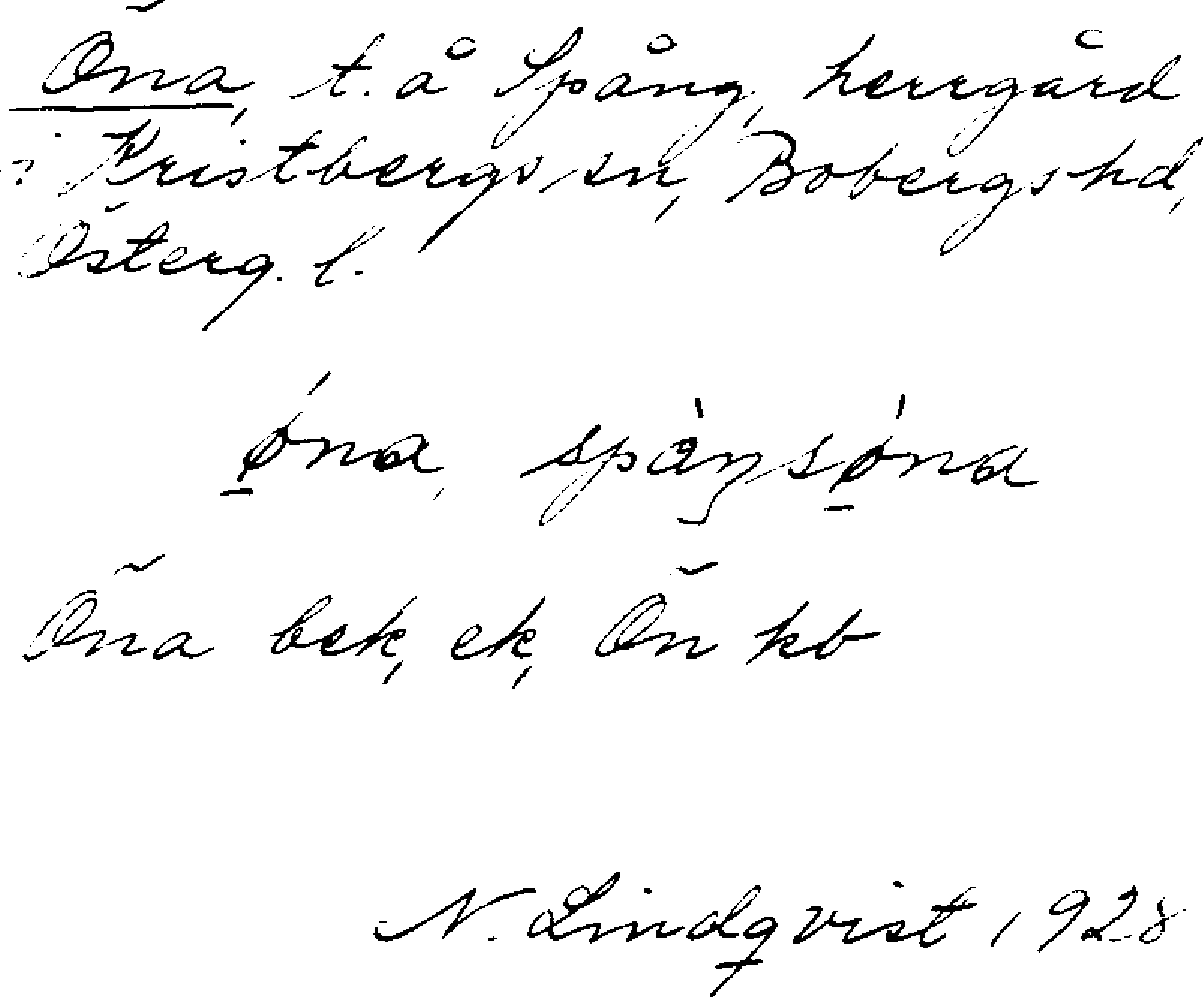 Öna, t. å Spång, herrgård
i Kristbergs sn, Bobergs hd,
Österg. l.
ǿna, spåŋsǿna
Öna bek, ek, Ön kb
N. Lindqvist 1928